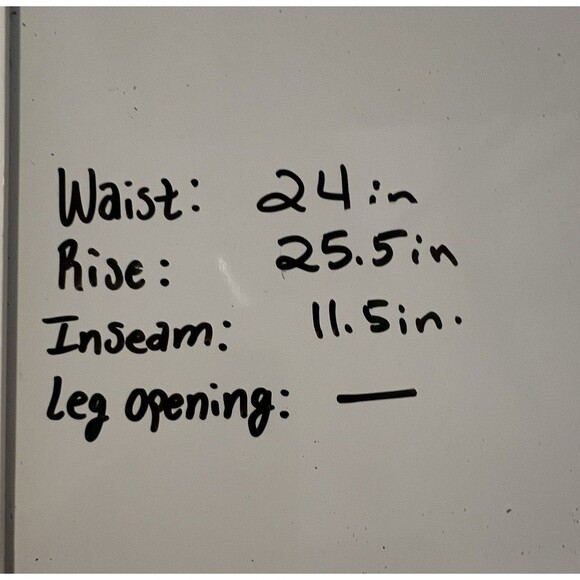 Waist: 24 in
Rise: 25.5 in
Inseam: 11.5 in.
Leg opening: —